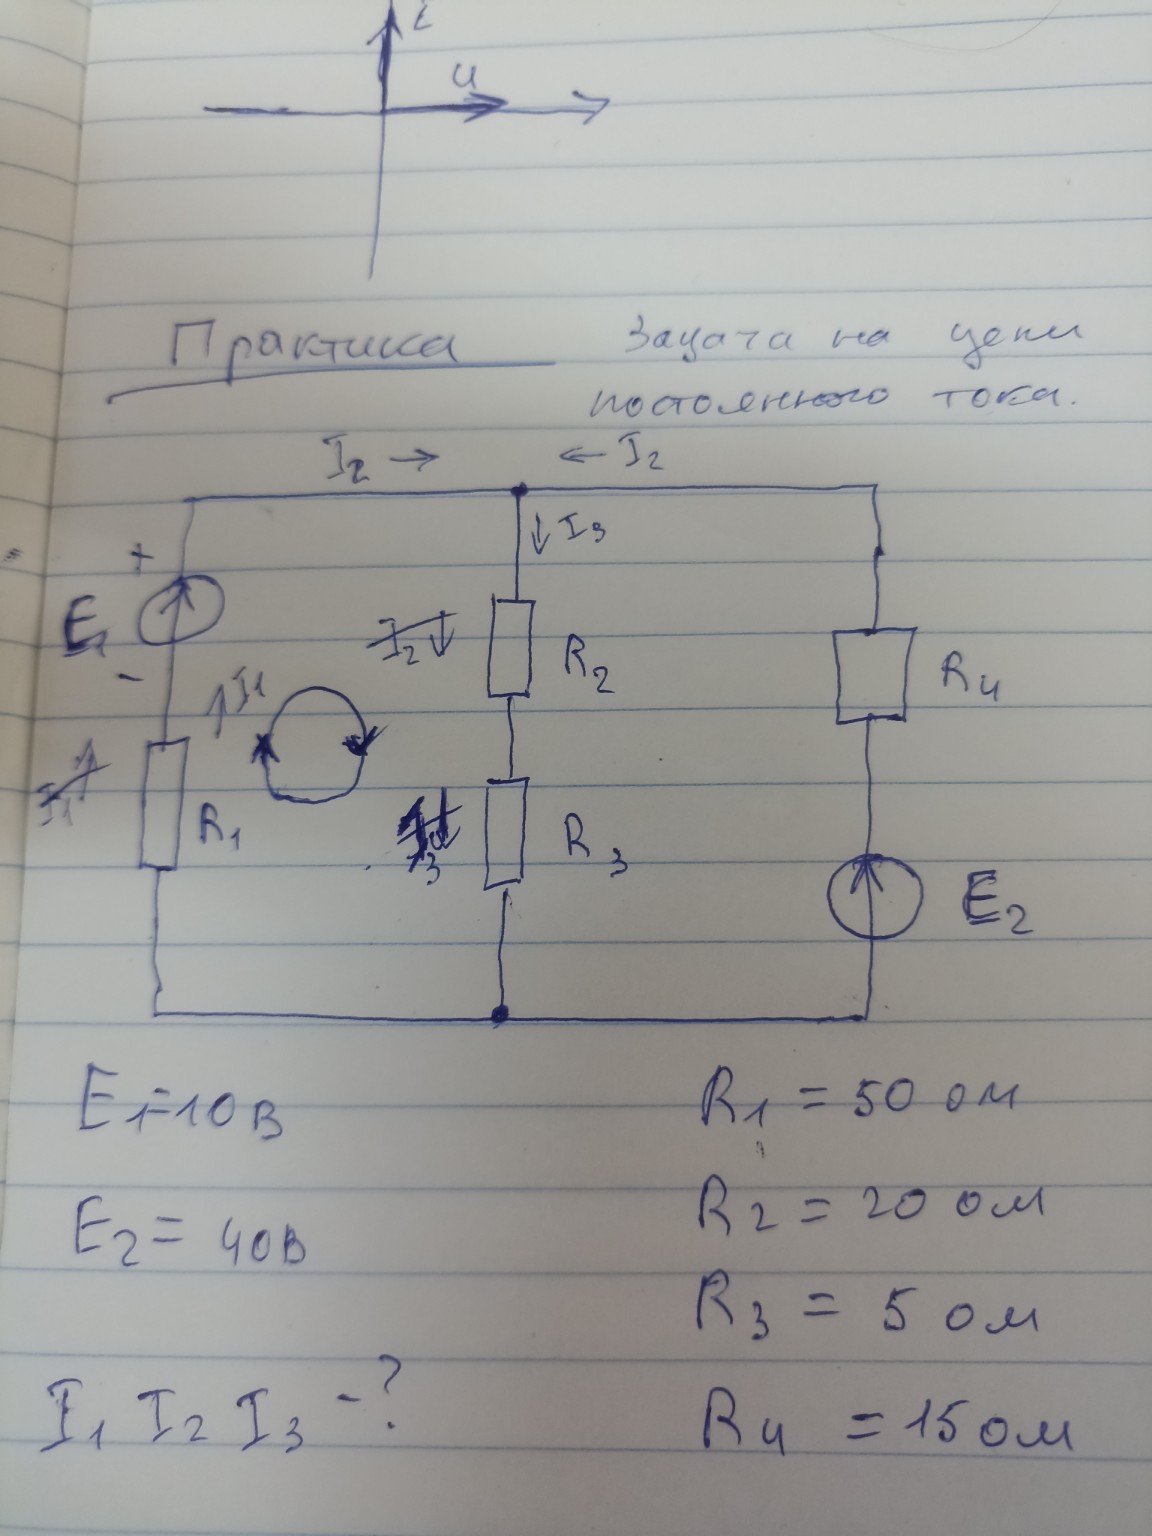 i
u
Практика
Задача на цепи
постоянного тока.
I2 → ← I2
↓ I3
+
E1
I2 ↓
R2
R4
-
↑ I1
I1
R1
I3
R3
E2
E1=10В
R1 = 50 ом
E2 = 40В
R2 = 20 ом
R3 = 5 ом
I1 I2 I3 -?
R4 = 15 ом